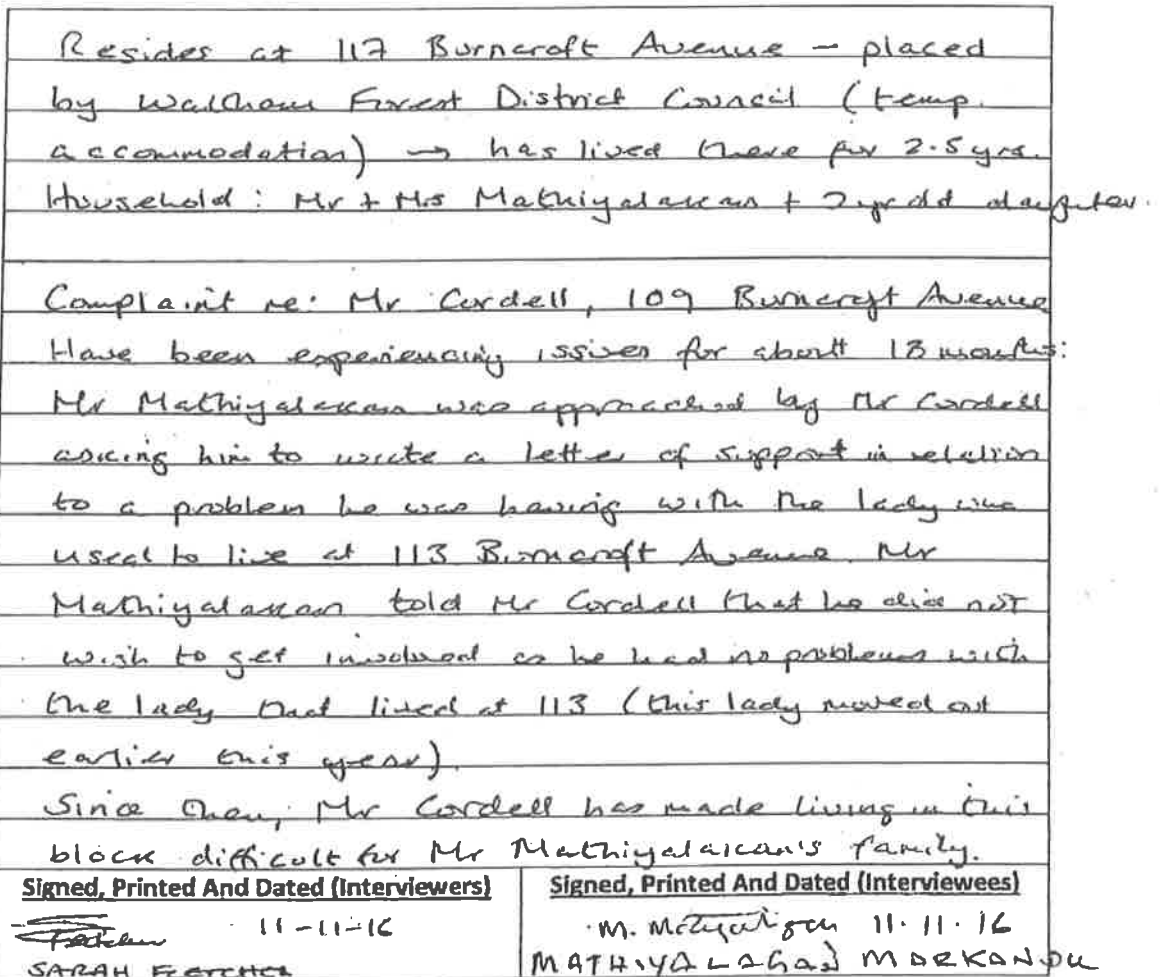 Resides at 117 Burncroft Avenue - placed
by Waltham Forest District Council (temp.
accommodation) → has lived there for 2.5 yrs.
Household: Mr + Mrs Mathiyalakan + 2 yr old daughter.
Complaint re: Mr Cordell, 109 Burncroft Avenue
Have been experiencing issues for about 18 months:
Mr Mathiyalakan was approached by Mr Cordell
asking him to write a letter of support in relation
to a problem he was having with the lady who
used to live at 113 Burncroft Avenue. Mr
Mathiyalakan told Mr Cordell that he did not
wish to get involved as he had no problems with
the lady that lived at 113 (this lady moved out
earlier this year).
Since then, Mr Cordell has made living in this
block difficult for Mr Mathiyalakan's family.
Signed, Printed And Dated (Interviewers)
11-11-16
SARAH FLETCHER
Signed, Printed And Dated (Interviewees)
M. 11.11.16
MATHIYALAGAN MARKANDU